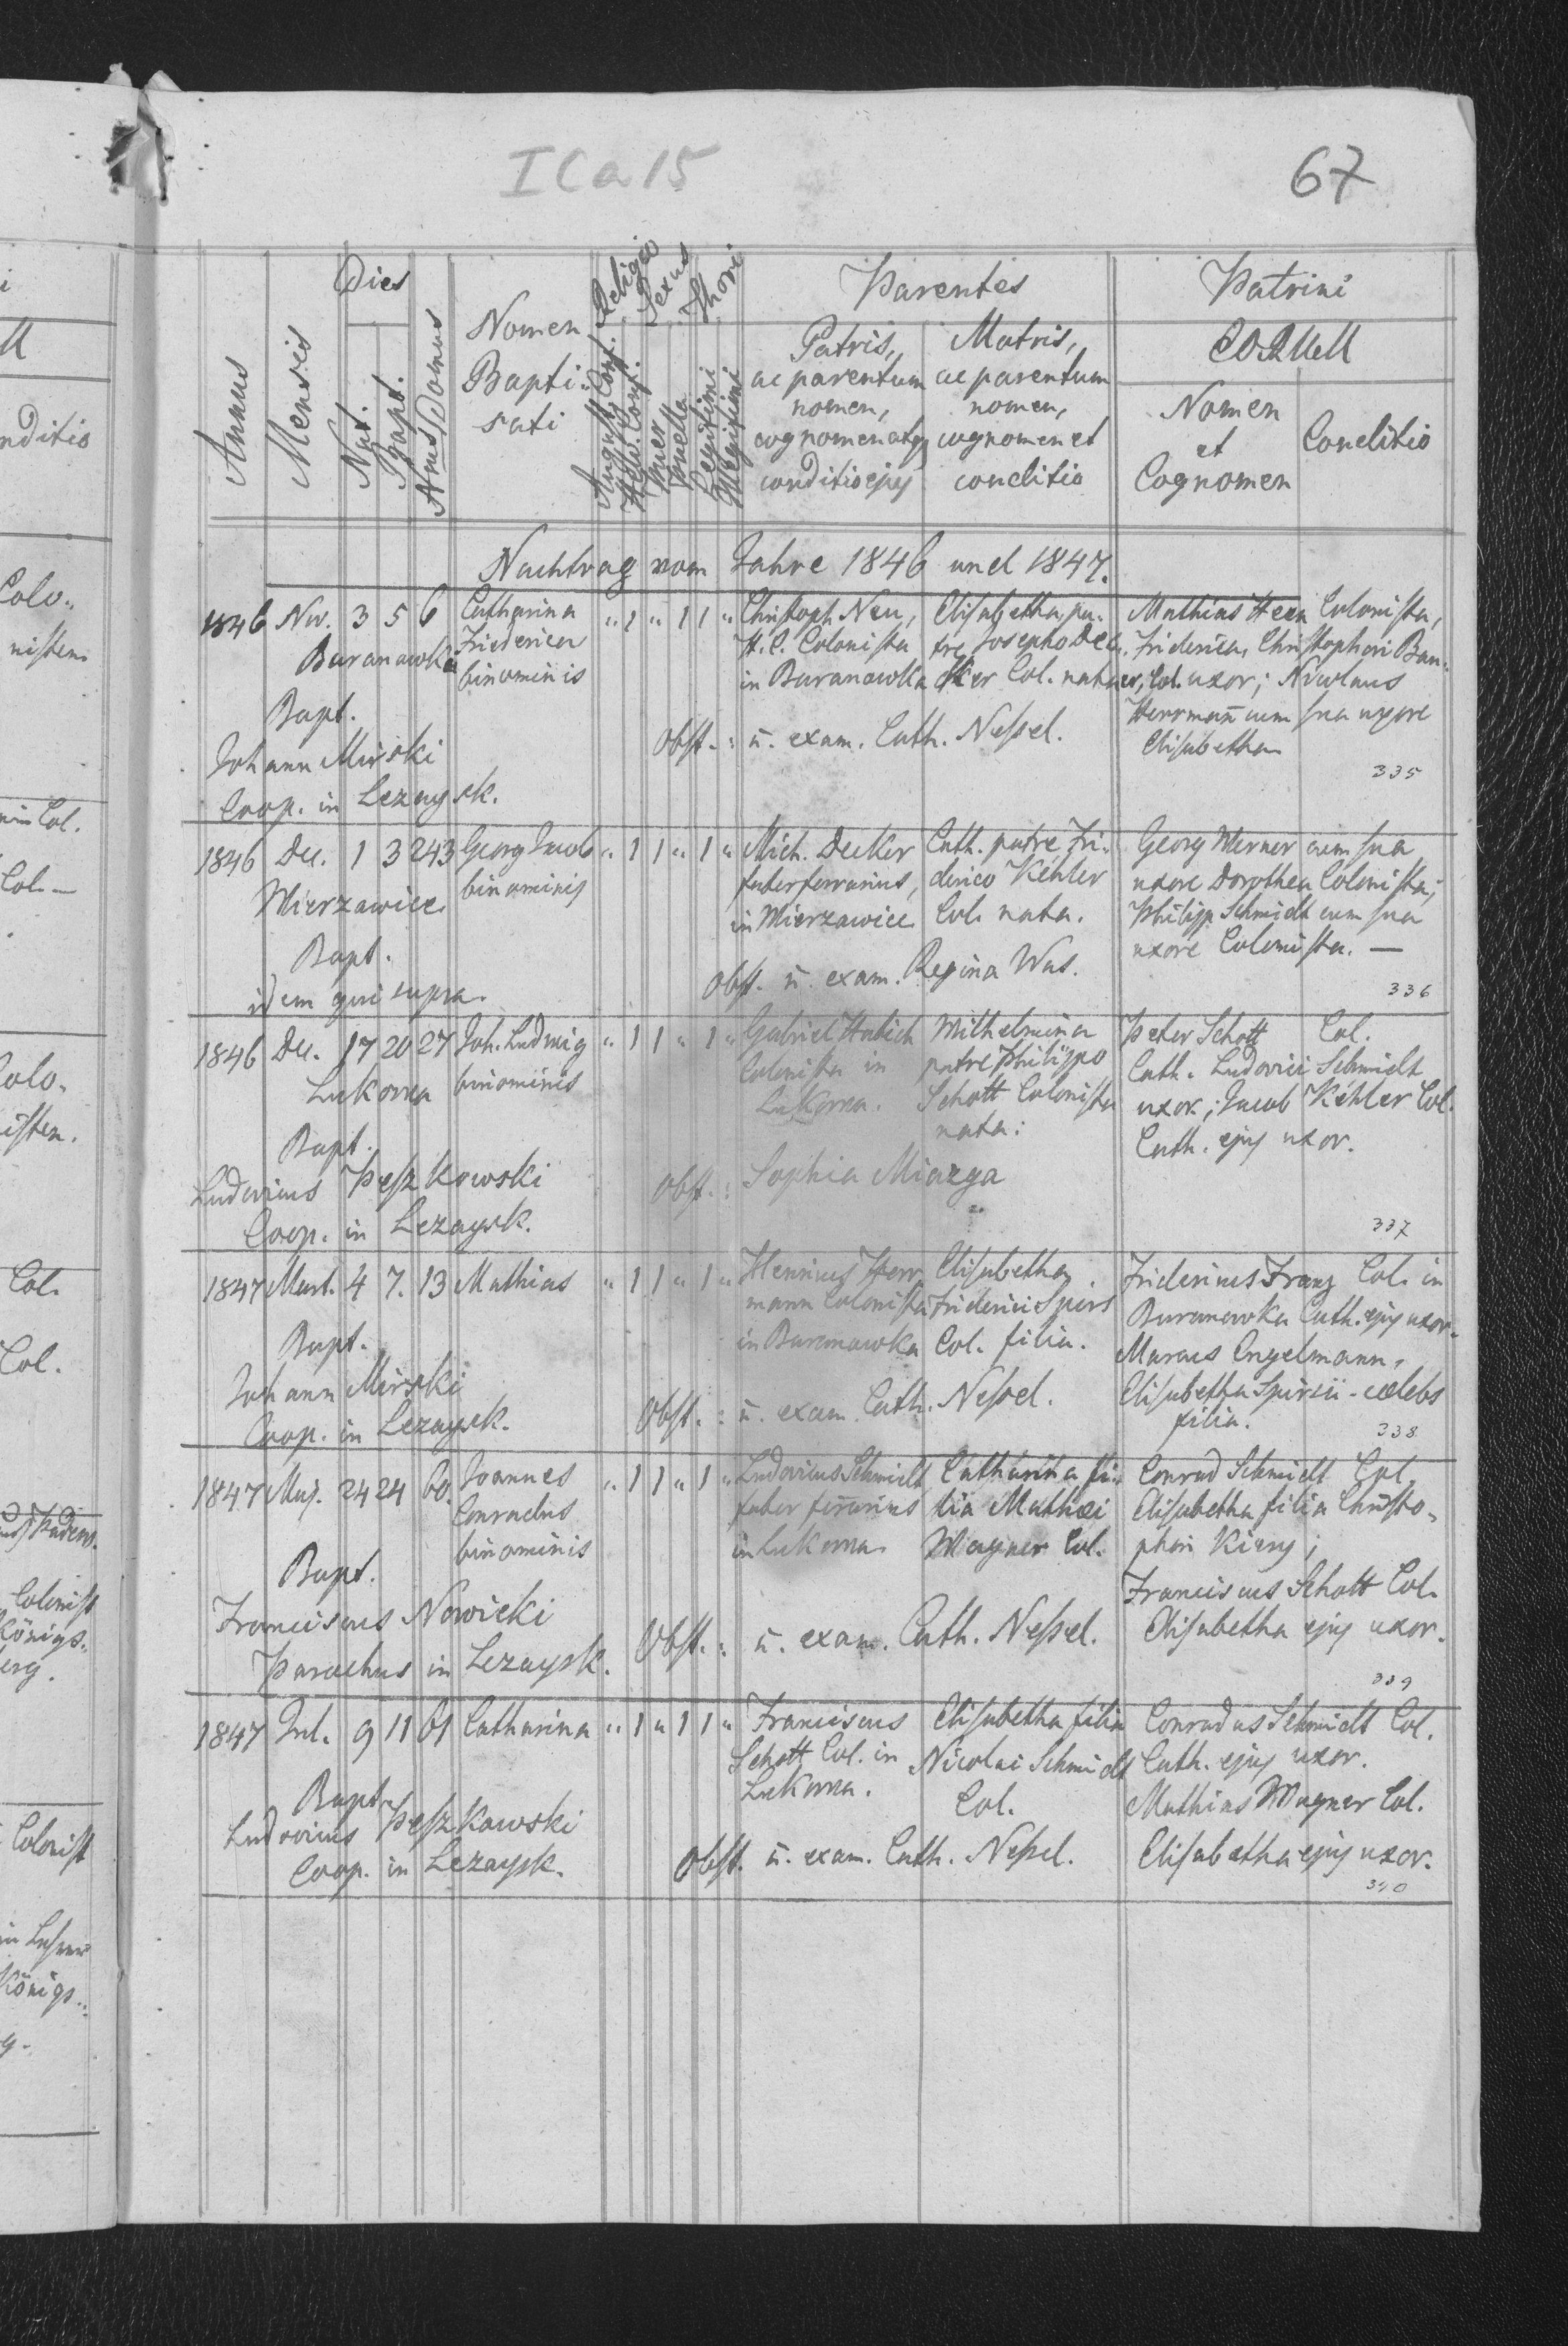 I C a 15
67
Annus
Mensis
Dies
Nat.
Bapt.
Nrus Domus
Nomen
Bapti-
sati
Religio
August. Conf.
Helv. Conf.
Sexus
Puer
Puella
Thori
Legitimi
Illegitimi
Parentes
Patris,
ac parentum
nomen,
cognomen atq
conditio ejus
Matris,
ac parentum
nomen,
cognomen et
conditio
Patrini
eorum
Nomen
et
Cognomen
Conditio
Nachtrag vom Jahre 1846 und 1847.
1846 Nov. 3 5 6 Catharina " 1 " 1 1 " Christoph Neu, Elisabetha pa- Mathias Heen Colonista,
Baranowka Friderica H. C. Colonista tre Josepho De- Friderica, Christophori Bau-
binominis in Baranowka cker Col. nata er, Col. uxor; Nicolaus
Bapt. Herrmann cum sua uxore
Johann Mirski Obst.: u. exam. Cath. Nessel. Elisabetha
Coop. in Lezaysk. 335
1846 Dec. 1 3 243 Georg Jacob " 1 1 " 1 " Mich. Decker Cath. patre Fri- Georg Werner cum sua
Mierzawice binominis faber ferrarius, derico Kéhler uxore Dorothea Colonista;
in Mierzawice Col. nata. Philipp Schmidt cum sua
Bapt. uxore Colonista. —
idem qui supra. Obst. u. exam. Regina Was.
336
1846 Dec. 17 20 27 Joh. Ludwig " 1 1 " 1 " Gabriel Habich Wilhelmina Peter Schott Col.
Lukowa binominis Colonista in patre Philippo Cath. Ludovici Schmidt
Lukowa. Schott Colonista uxor; Jacob Kéhler Col.
nata: Cath. ejus uxor.
Bapt.
Ludovicus Peszkowski Obst.: Sophia Miazga
Coop. in Lezaysk. 337
1847 Mart. 4 7. 13 Mathias " 1 1 " 1 " Henricus Herr Elisabetha Fridericus Franz Col. in
mann Colonista Friderici Spers Baranowka Cath. ejus uxor.
Bapt. in Baranowka Col. filia. Marcus Engelmann,
Johann Mirski Elisabetha Spirsii - cœlebs
Coop. in Lezaysk. Obst.: u. exam. Cath. Nessel. filia.
338
1847 Maj. 24 24 60. Joannes " 1 1 " 1 " Ludovicus Schmidt Catharina fi- Conrad Schmidt Col.
Conradus faber ferrarius lia Mathæi Elisabetha filia Christo-
binominis in Lukowa Wagner Col. phori Kieny;
Bapt. Franciscus Schott Col.
Franciscus Nowicki Obst.: u. exam. Cath. Nessel. Elisabetha ejus uxor.
Parochus in Lezaysk.
339
1847 Jul. 9 11 61 Catharina " 1 " 1 1 " Franciscus Elisabetha filia Conradus Schmidt Col.
Schott Col. in Nicolai Schmidt Cath. ejus uxor.
Bapt. Lukowa. Col. Mathias Wagner Col.
Ludovicus Peszkowski
Coop. in Lezaysk. Obst. u. exam. Cath. Nessel. Elisabetha ejus uxor.
340